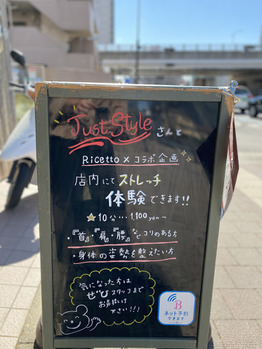 Just Style さんと
Ricetto × コラボ企画
店内にてストレッチ
体験できます!!
10分…1,100yen〜
・"首"、"肩"、"腰"などコリのある方
・身体の姿勢を整えたい方
気になった方は
ぜひスタッフまで
お声がけ
下さい!!
B
ネット予約
できます